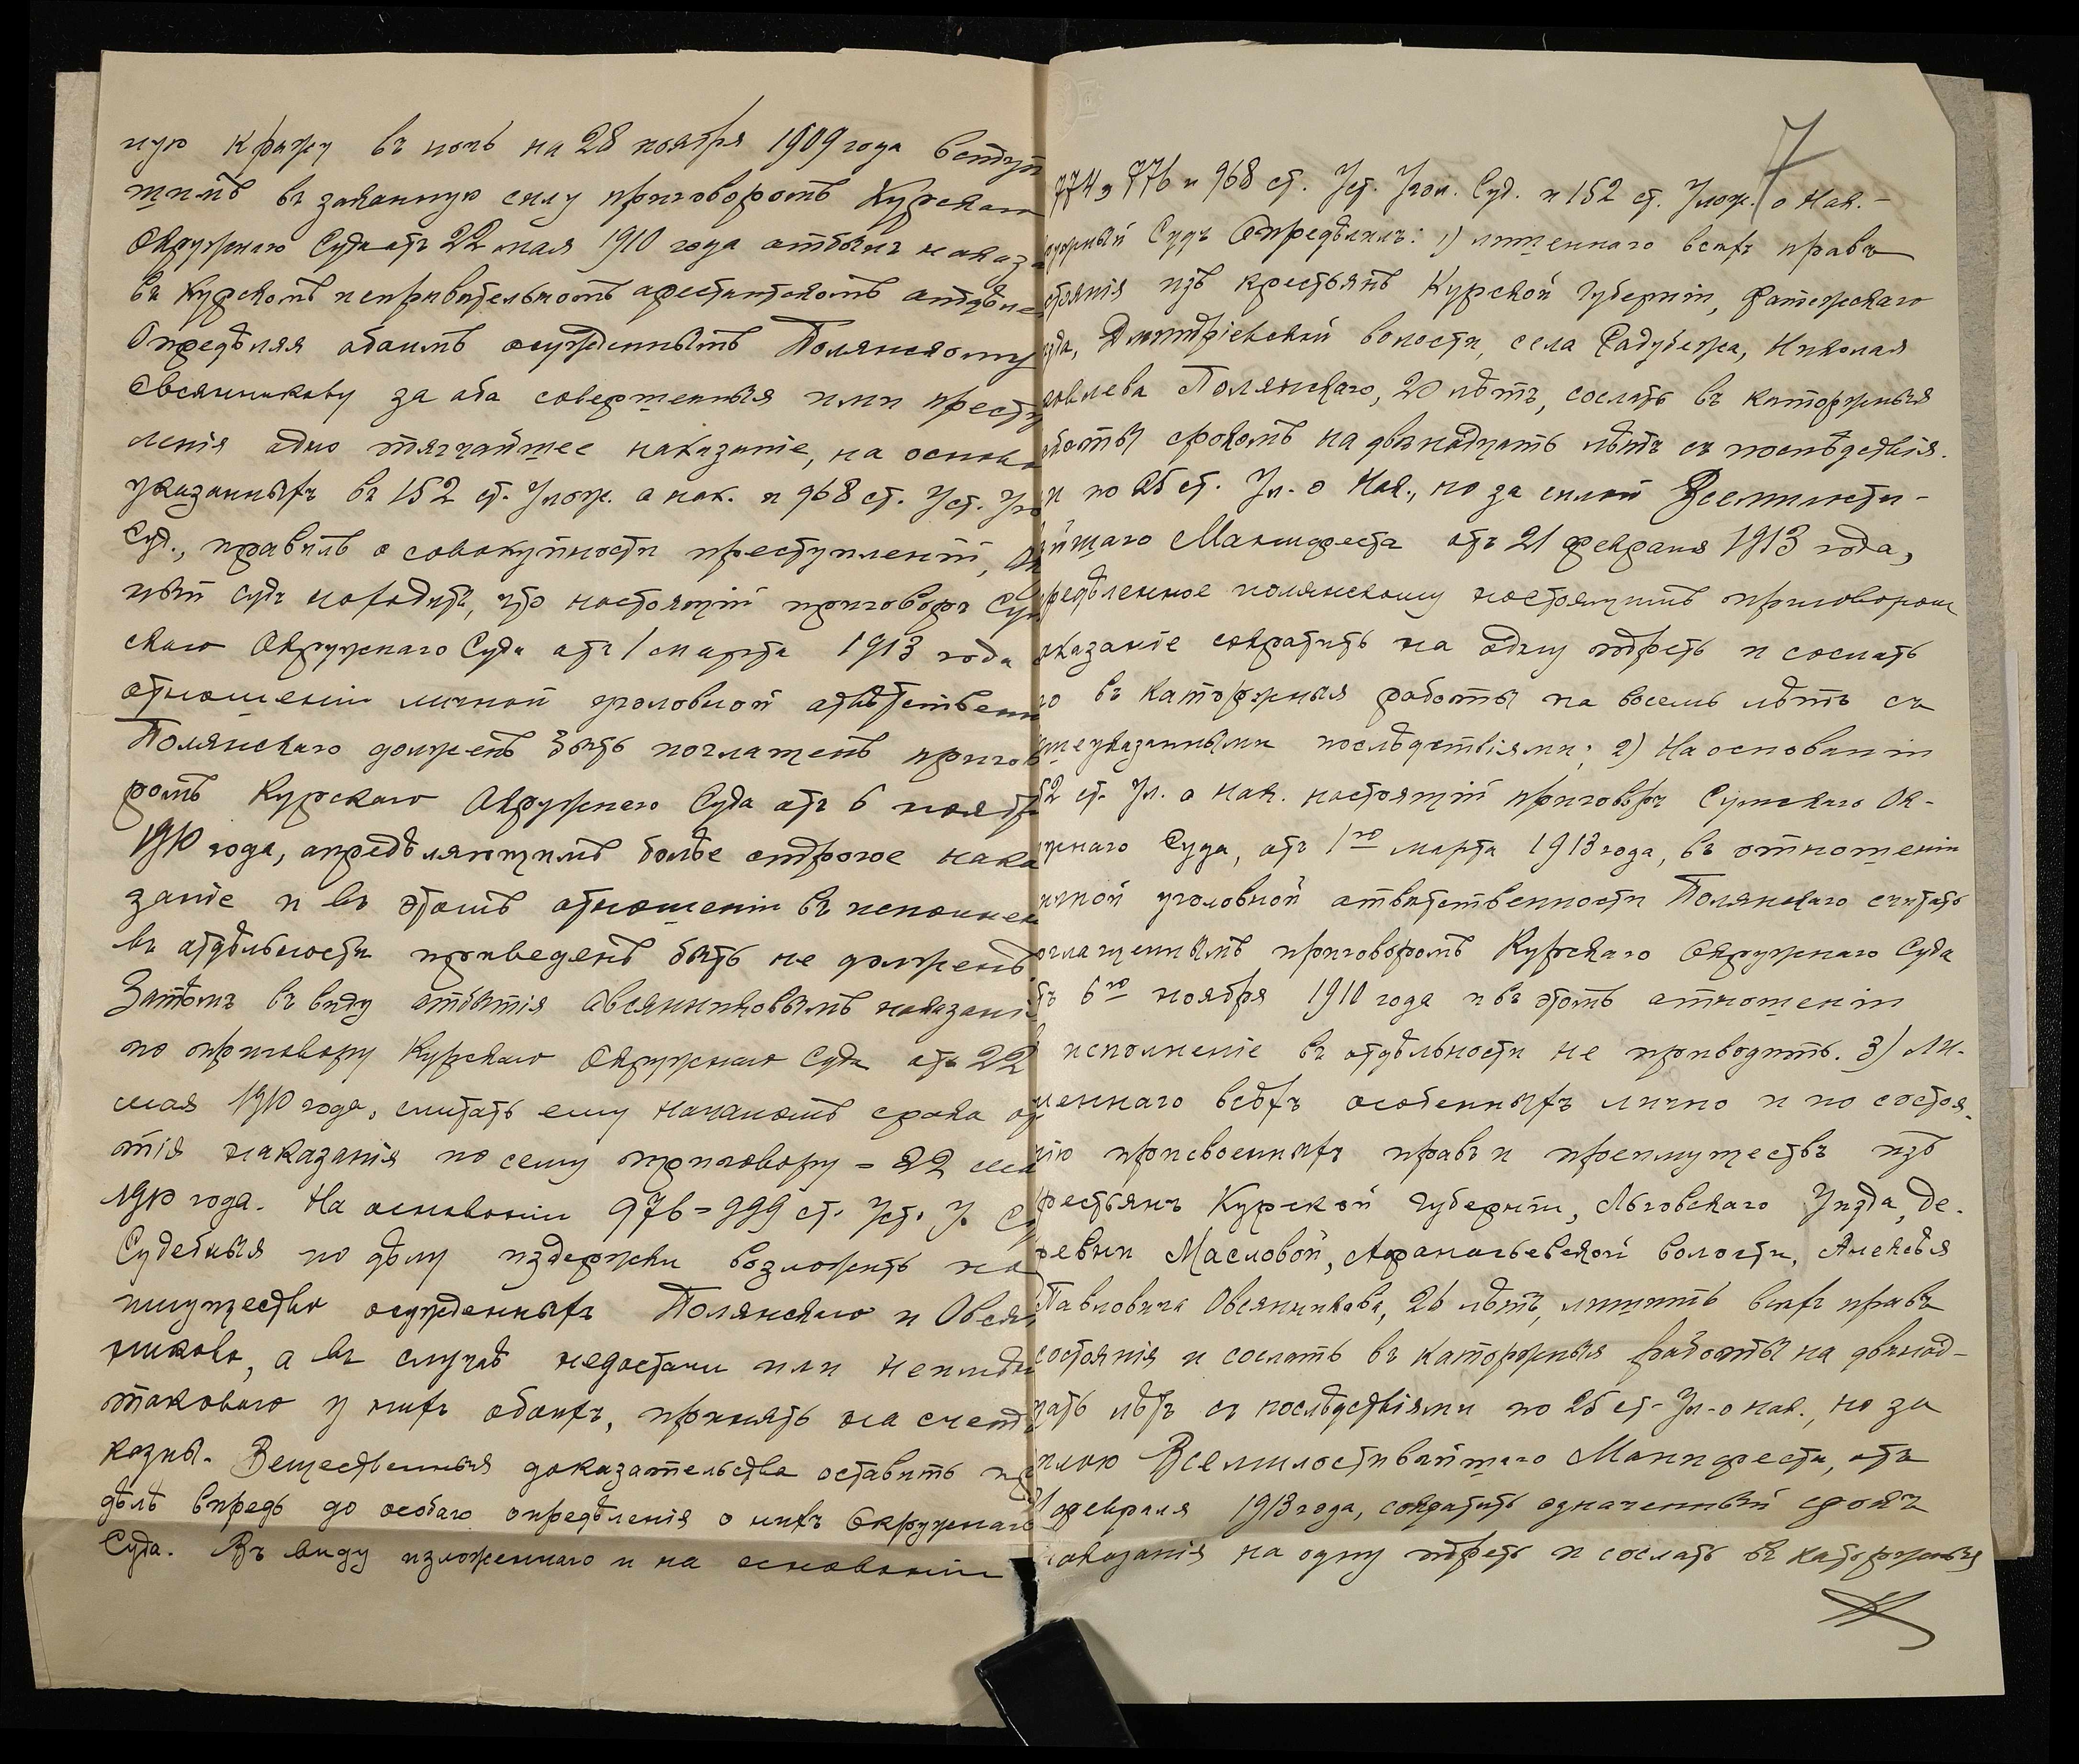 ную кражу въ ночь на 28 ноября 1909 года вступи
шимъ въ законную силу приговоромъ Курскаго
Окружнаго Суда отъ 22 мая 1910 года отбылъ наказа
въ Курскомъ исправительномъ арестантскомъ отдѣле
Опредѣляя обоимъ осужденнымъ Полянскому
Овсянникову за оба совершенныя ими престу
ленія одно тягчайшее наказаніе, на основа
указанныхъ въ 152 ст. Улож. о нак. и 968 ст. Уст. Уго
Суд., правилъ о совокупности преступленій, Ок
ный судъ находитъ, что настоящій приговоръ Сум
скаго Окружнаго Суда отъ 1 марта 1913 года
отношеніи личной уголовной отвѣтственн
Полянскаго долженъ быть поглащенъ приго
ромъ Курскаго Окружнаго Суда отъ 6 ноября
1910 года, опредѣляющимъ болѣе строгое нака
заніе и въ этомъ отношеніи въ исполнен
въ отдѣльности приведенъ быть не долженъ
Затѣмъ въ виду отбытія Овсянниковымъ наказані
по приговору Курскаго Окружнаго Суда отъ 22
мая 1910 года, считать ему началомъ срока от
тія наказанія по сему приговору = 22 мая
1910 года. На основаніи 976 = 999 ст. Уст. У. Су
Судебныя по дѣлу издержки возложить на
имущество осужденныхъ Полянскаго и Овсян
никова, а въ случаѣ недостачи или неимѣн
таковаго у нихъ обоихъ, принять на счетъ
казны. Вещественныя доказательства оставить при
дѣлѣ впредь до особаго опредѣленія о нихъ Окружнаго
Суда. Въ виду изложеннаго и на основаніи
7
774, 776 и 968 ст. Уст. Угол. Суд. и 152 ст. Улож. о Нак. -
ружный Судъ Опредѣлилъ: 1) лишеннаго всѣхъ правъ
стоянія изъ крестьянъ Курской губерніи, Фатежскаго
зда, Дмитріевской волости, села Радубежа, Николая
ковлева Полянскаго, 20 лѣтъ, сослать въ каторжныя
аботы срокомъ на двѣнадцать лѣтъ съ послѣдствія.
и по 25 ст. Ул. о Нак., но за силой Всемилости-
ѣйшаго Манифеста отъ 21 февраля 1913 года,
редѣленное полянскому настоящимъ приговоромъ
аказаніе сократить на одну треть и сослать
го въ каторжныя работы на восемь лѣтъ съ
шеуказанными послѣдствіями; 2) На основаніи
52 ст. Ул. о нак. настоящій приговоръ Сумскаго Ок-
жнаго Суда, отъ 1го марта 1913 года, въ отношеніи
ичной уголовной отвѣтственности Полянскаго считать
оглащеннымъ приговоромъ Курскаго Окружнаго Суда
тъ 6го ноября 1910 года и въ этомъ отношеніи
исполненіе въ отдѣльности не приводить. 3) Ли-
шеннаго всѣхъ особенныхъ лично и по состоя-
нію присвоенныхъ правъ и преимуществъ изъ
рестьянъ Курской губерніи, Льговскаго Уѣзда, де-
ревни Масловой, Афанасьевской волости, Алексѣя
Павловича Овсянникова, 26 лѣтъ, лишить всѣхъ правъ
состоянія и сослать въ каторжныя работы на двѣнад-
цать лѣтъ съ послѣдствіями по 25 ст. Ул. о нак., но за
илою Всемилостивѣйшаго Манифеста, отъ
21 февраля 1913 года, сократить означенный срокъ
наказанія на одну треть и сослать въ каторжныя